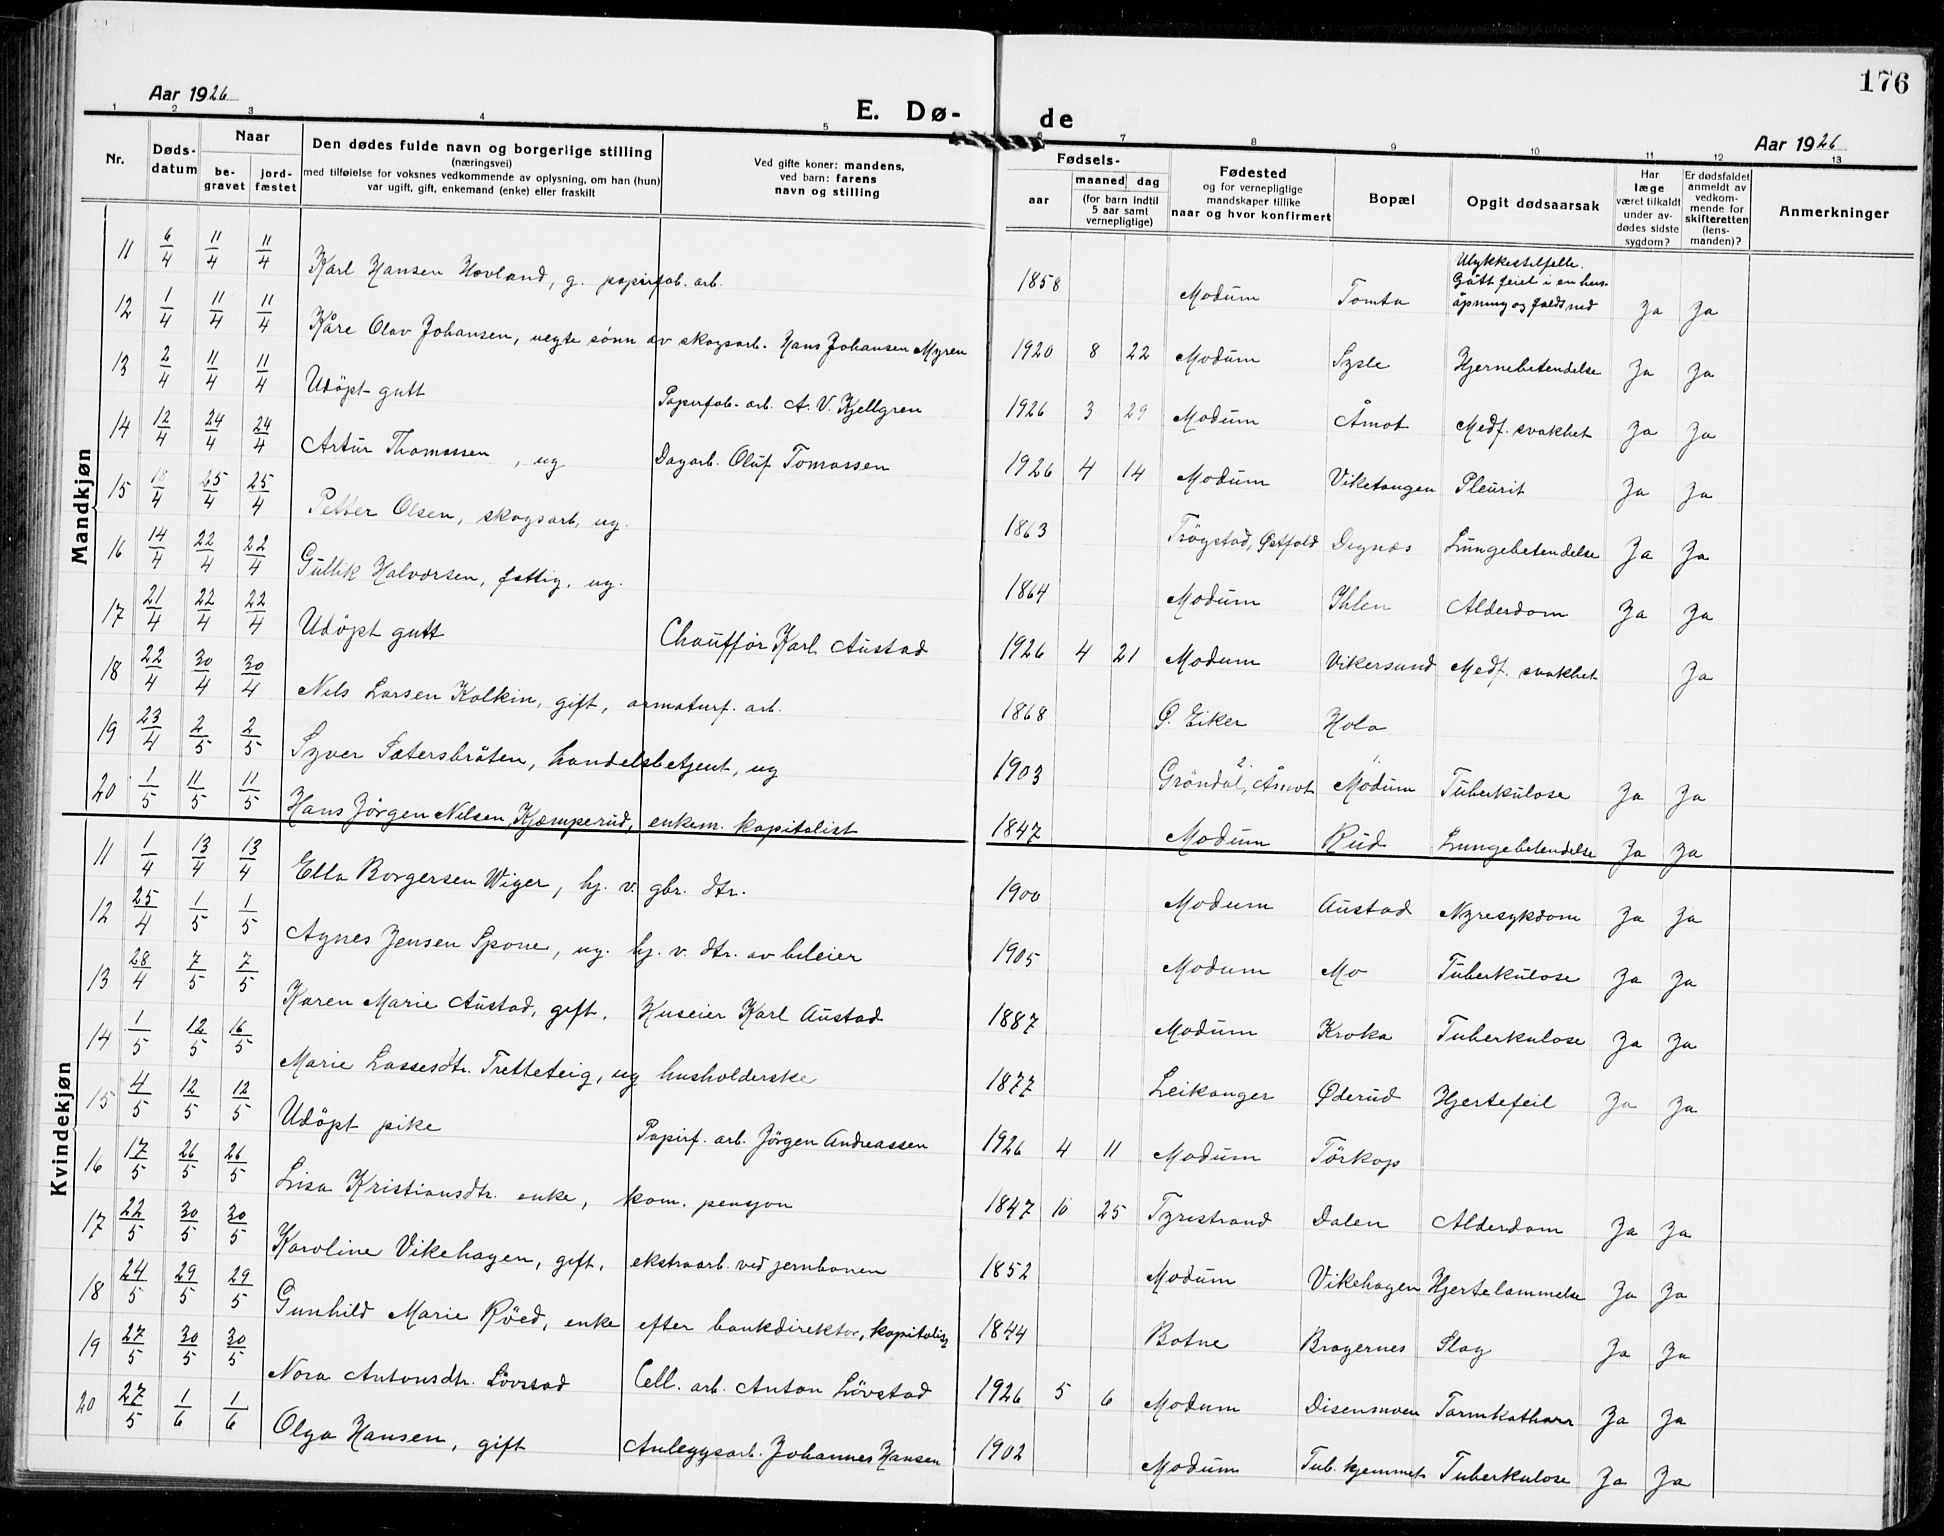 176
Aar 1926 E. Dø- de Aar 1926
1 2 3 4 5 6 7 8 9 10 11 12 13
Nr. Døds-datum Naar be-gravet jord-fæstet Den dødes fulde navn og borgerlige stilling (næringsvei) med tilføielse for voksnes vedkommende av oplysning, om han (hun) var ugift, gift, enkemand (enke) eller fraskilt Ved gifte koner: mandens, ved barn: farens navn og stilling Fødsels- aar maaned dag (for barn indtil 5 aar samt vernepligtige) Fødested og for vernepligtige mandskaper tillike naar og hvor konfirmert Bopæl Opgit dødsaarsak Har læge været tilkaldt under av-dødes sidste sygdom? Er dødsfaldet anmeldt av vedkom-mende for skifteretten (lens-manden)? Anmerkninger
Mandkjøn
11 6/4 11/4 11/4 Karl Hansen Hovland, g. papirfab. arb. 1858 Modum Tomta Ulykkestilfelle. Gått feil i en åpning og faldt ned Ja Ja
12 1/4 11/4 11/4 Kåre Olav Johansen, uegte sønn av skogsarb. Hans Johansen Myren 1920 8 22 Modum Sysle Hjernebetendelse Ja Ja
13 2/4 11/4 11/4 Udöpt gutt Papirfab. arb. A. V. Kjellgren 1926 3 29 Modum Åmot Medf. svakhet Ja Ja
14 12/4 24/4 24/4 Artur Thomassen, ug Dagarb. Oluf Tomassen 1926 4 14 Modum Viketangen Pleurit Ja Ja
15 18/4 25/4 25/4 Petter Olsen, skogsarb, ug. 1863 Trögstad, Østfold Degnæs Lungebetendelse Ja Ja
16 14/4 22/4 22/4 Gullik Halvorsen, fattig, ug. 1864 Modum Ihlen Alderdom Ja Ja
17 21/4 22/4 22/4 Udöpt gutt Chauffør Karl Austad 1926 4 21 Modum Vikersund Medf. svakhet Ja
18 22/4 30/4 30/4 Nils Larsen Kolkin, gift, armaturf. arb. 1868 Ø. Eiker Hola
19 23/4 2/5 2/5 Syver Sætersbråten, handelsbetjent, ug 1903 Gröndal, Åmot Modum Tuberkulose Ja Ja
20 1/5 11/5 11/5 Hans Jörgen Nilsen Kjæmperud, enkem. kapitalist 1847 Modum Rud Lungebetendelse Ja Ja
Kvindekjøn
11 1/4 13/4 13/4 Ella Borgersen Wiger, hj. v. gbr. dtr. 1900 Modum Austad Nyresykdom Ja Ja
12 25/4 1/5 1/5 Agnes Jensen Spone, ug. hj. v. dtr. av bileier 1905 Modum Mo Tuberkulose Ja Ja
13 28/4 7/5 7/5 Karen Marie Austad, gift. Huseier Karl Austad 1887 Modum Kroka Tuberkulose Ja Ja
14 1/5 12/5 16/5 Marie Lassesdtr. Tretteteig, ug husholderske 1877 Leikanger Øderud Hjertefeil Ja Ja
15 4/5 12/5 12/5 Udöpt pike Papirf. arb. Jörgen Andreassen 1926 4 11 Modum Törkop
16 17/5 26/5 26/5 Lisa Kristiansdtr. enke, kom. pensjon 1847 10 25 Tyristrand Dalen Alderdom Ja Ja
17 22/5 30/5 30/5 Karoline Vikehagen, gift, ekstraarb. ved jernbanen 1852 Modum Vikehagen Hjertelammelse Ja Ja
18 24/5 29/5 29/5 Gunhild Marie Röed, enke efter bankdirektør, kapitalist 1844 Botne Bragernes Slag Ja Ja
19 27/5 30/5 30/5 Nora Antonsdtr. Lövstad Cell. arb. Anton Lövstad 1926 5 6 Modum Disenmoen Tarmkatharr Ja Ja
20 27/5 1/6 1/6 Olga Hansen, gift Anleggsarb. Johannes Hansen 1902 Modum Tub. hjemmet Tuberkulose Ja Ja